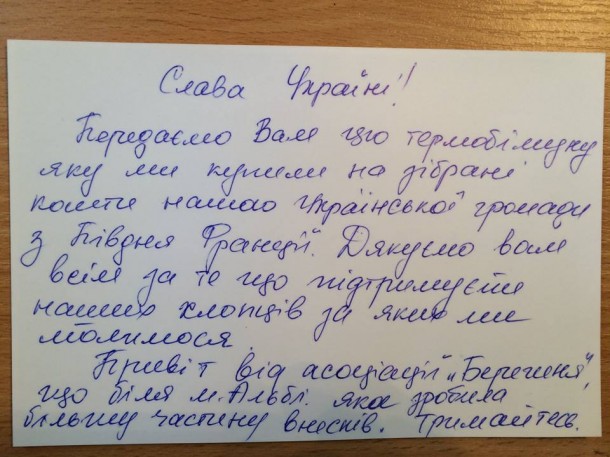 Слава Україні!
Передаємо Вам цю термобілизну
яку ми купили на зібрані
кошти нашою Української громади
з Півдня Франції. Дякуємо вам
всім за те що підтримуєте
наших хлопців за яких ми
молимося
Привіт від асоціації „Берегиня",
що біля м. Альбі. яка зробила
більшу частину внесків. Тримайтесь.